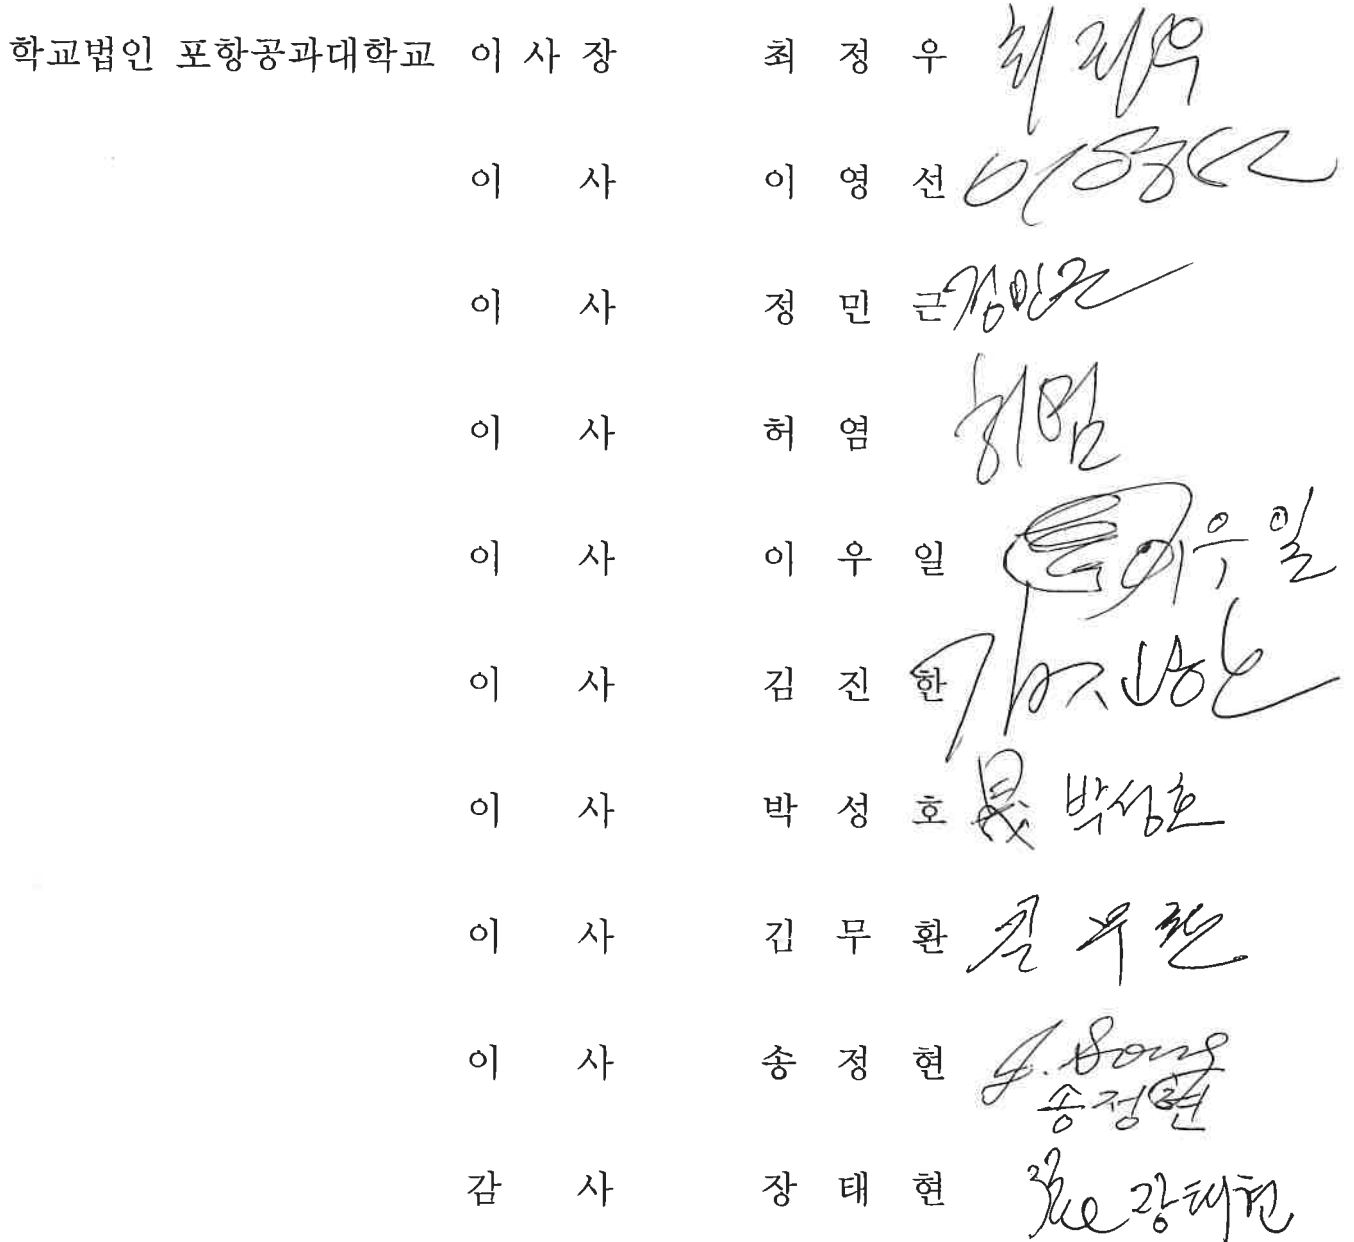 학교법인 포항공과대학교 이 사 장 최 정 우 최정우
이 사 이 영 선 이영선
이 사 정 민 근 정민근
이 사 허 염 허염
이 사 이 우 일 이우일
이 사 김 진 한
이 사 박 성 호 박성호
이 사 김 무 환 김무환
이 사 송 정 현 J. Song
송정현
감 사 장 태 현 장태현